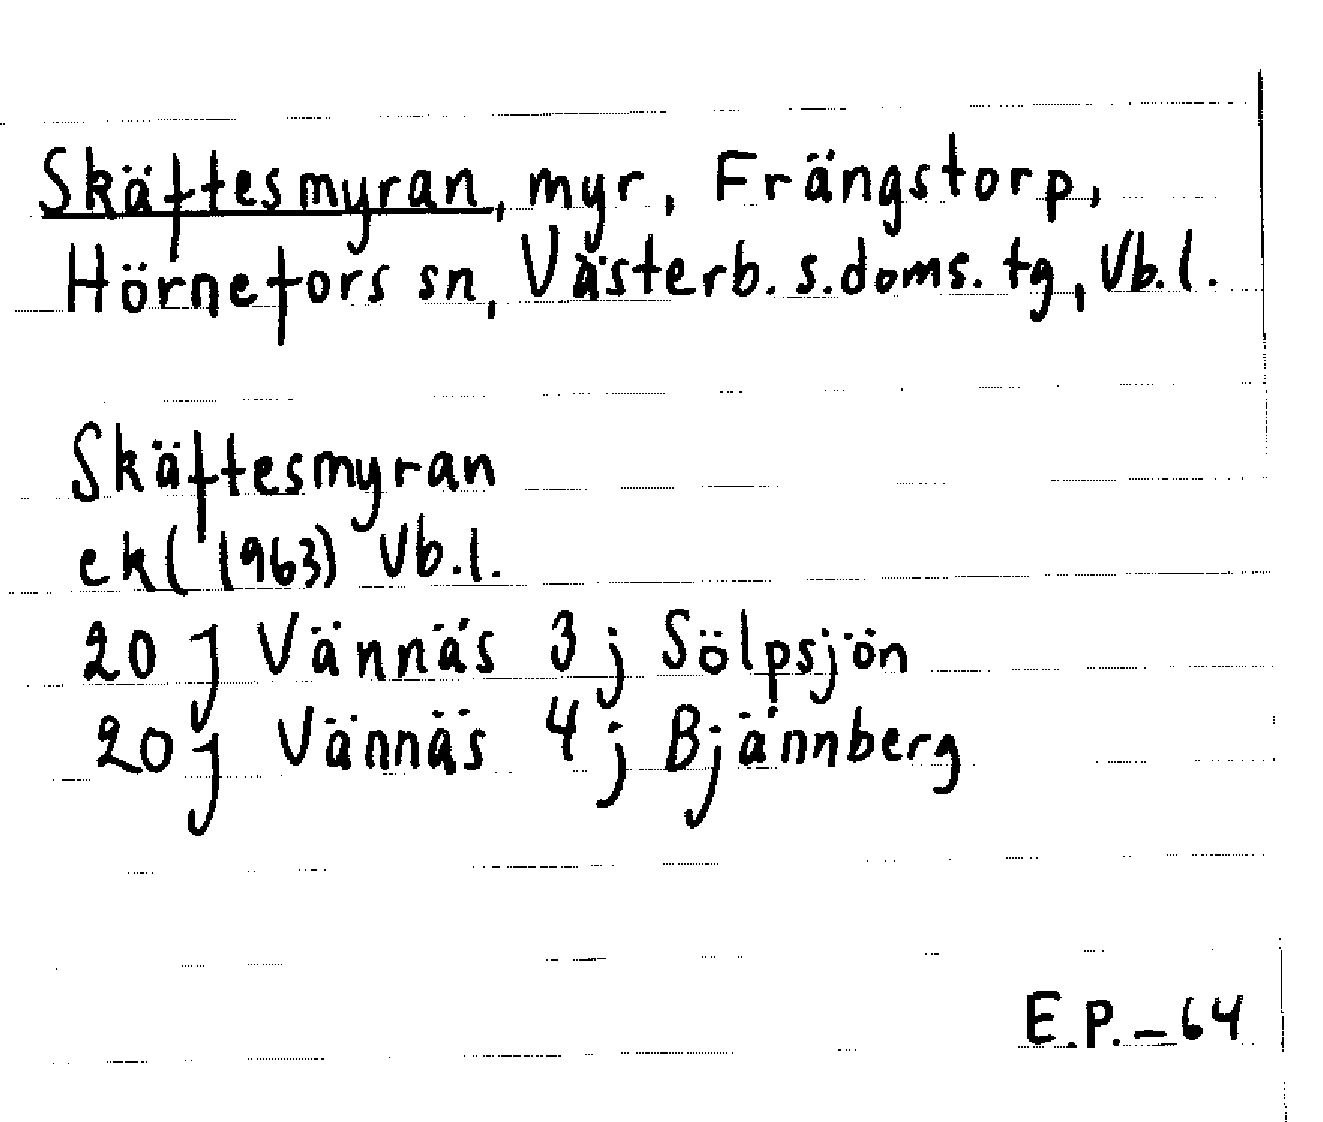 Skäftesmyran, myr, Frängstorp,
Hörnefors sn, Västerb. s.doms. tg, Vb.l.
Skäftesmyran
ek (1963) Vb.l.
20 J Vännäs 3 j Sölpsjön
20 J Vännäs 4 j Bjännberg
E.P. - 64